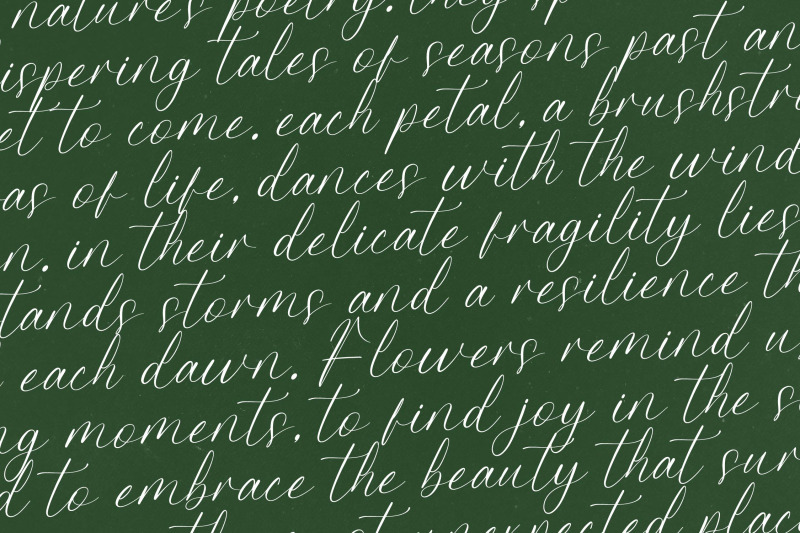 nature's poetry. they
ispering tales of seasons past an
et to come. each petal, a brushstr
as of life, dances with the wind
n. in their delicate fragility lies
tands storms and a resilience th
each dawn. Flowers remind u
ng moments, to find joy in the s
d to embrace the beauty that sur
unexpected place